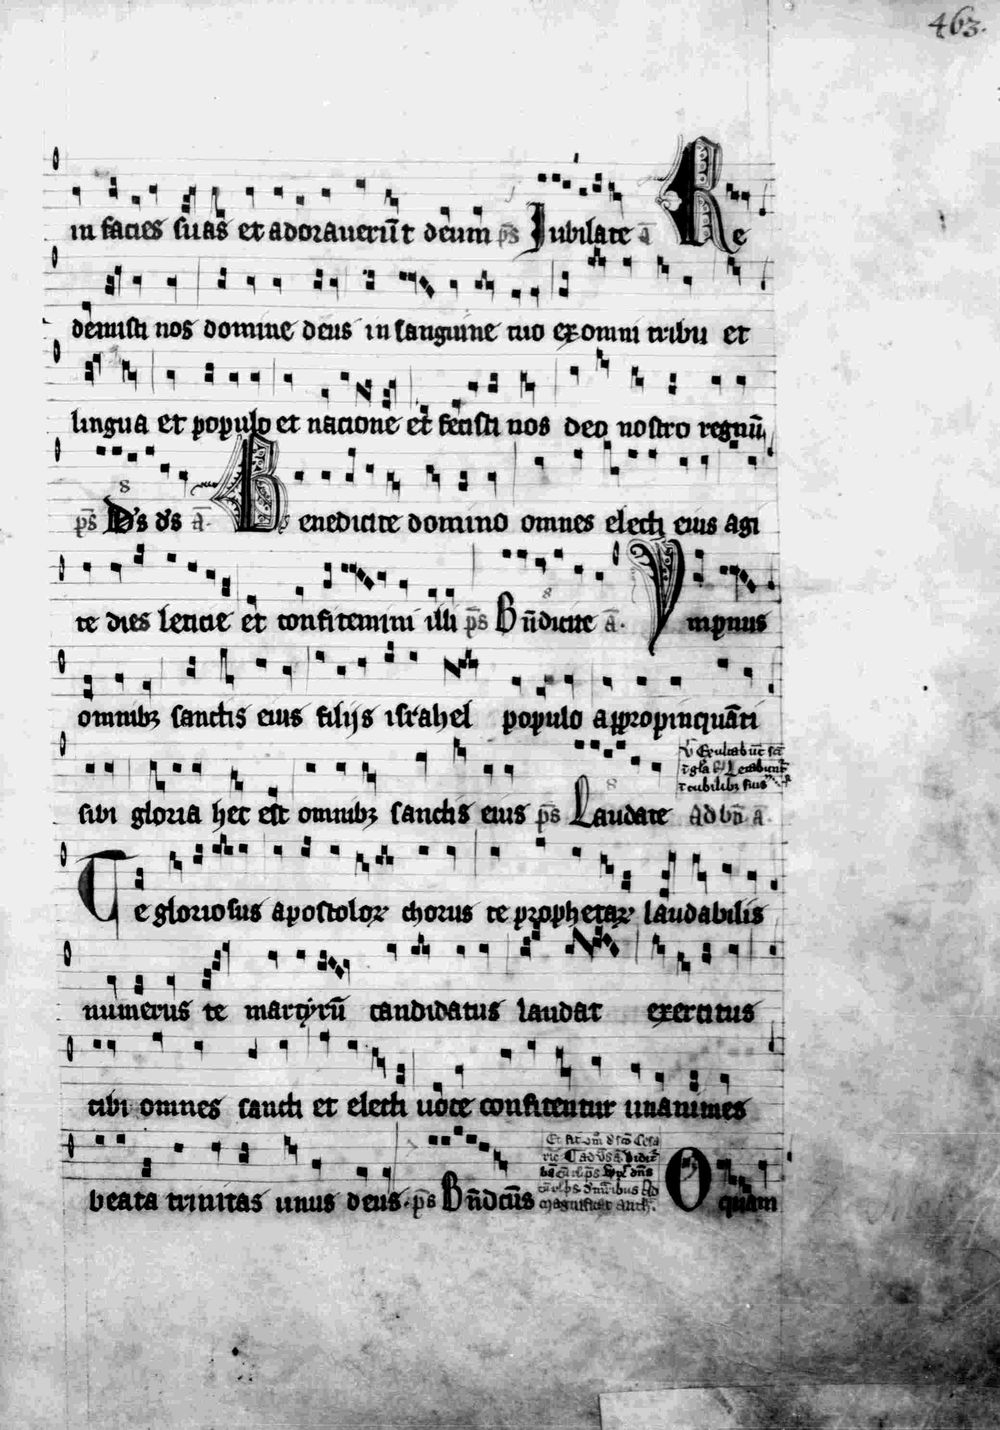 463.
in facies suas et adorauerūt deum p̄s Jubilate ā Re
demisti nos domine deus in sanguine tuo ex omni tribu et
lingua et populo et nacione et fecisti nos deo nostro regnū
p̄s D's d's ā. Benedicite domino omnes electi eius agi
te dies leticie et confitemini illi p̄s Bn̄dicite ā. Ympnus
omnibꝫ sanctis eius filijs israhel populo appropinquāti
sibi gloria hec est omnibꝫ sanctis eius p̄s Laudate Ad bn̄ ā.
Te gloriosus apostoloꝝ chorus te prophetaꝝ laudabilis
numerus te martyrū candidatus laudat exercitus
tibi omnes sancti et electi uoce confitentur unanimes
beata trinitas unus deus. p̄s Bn̄dcūs
O quam